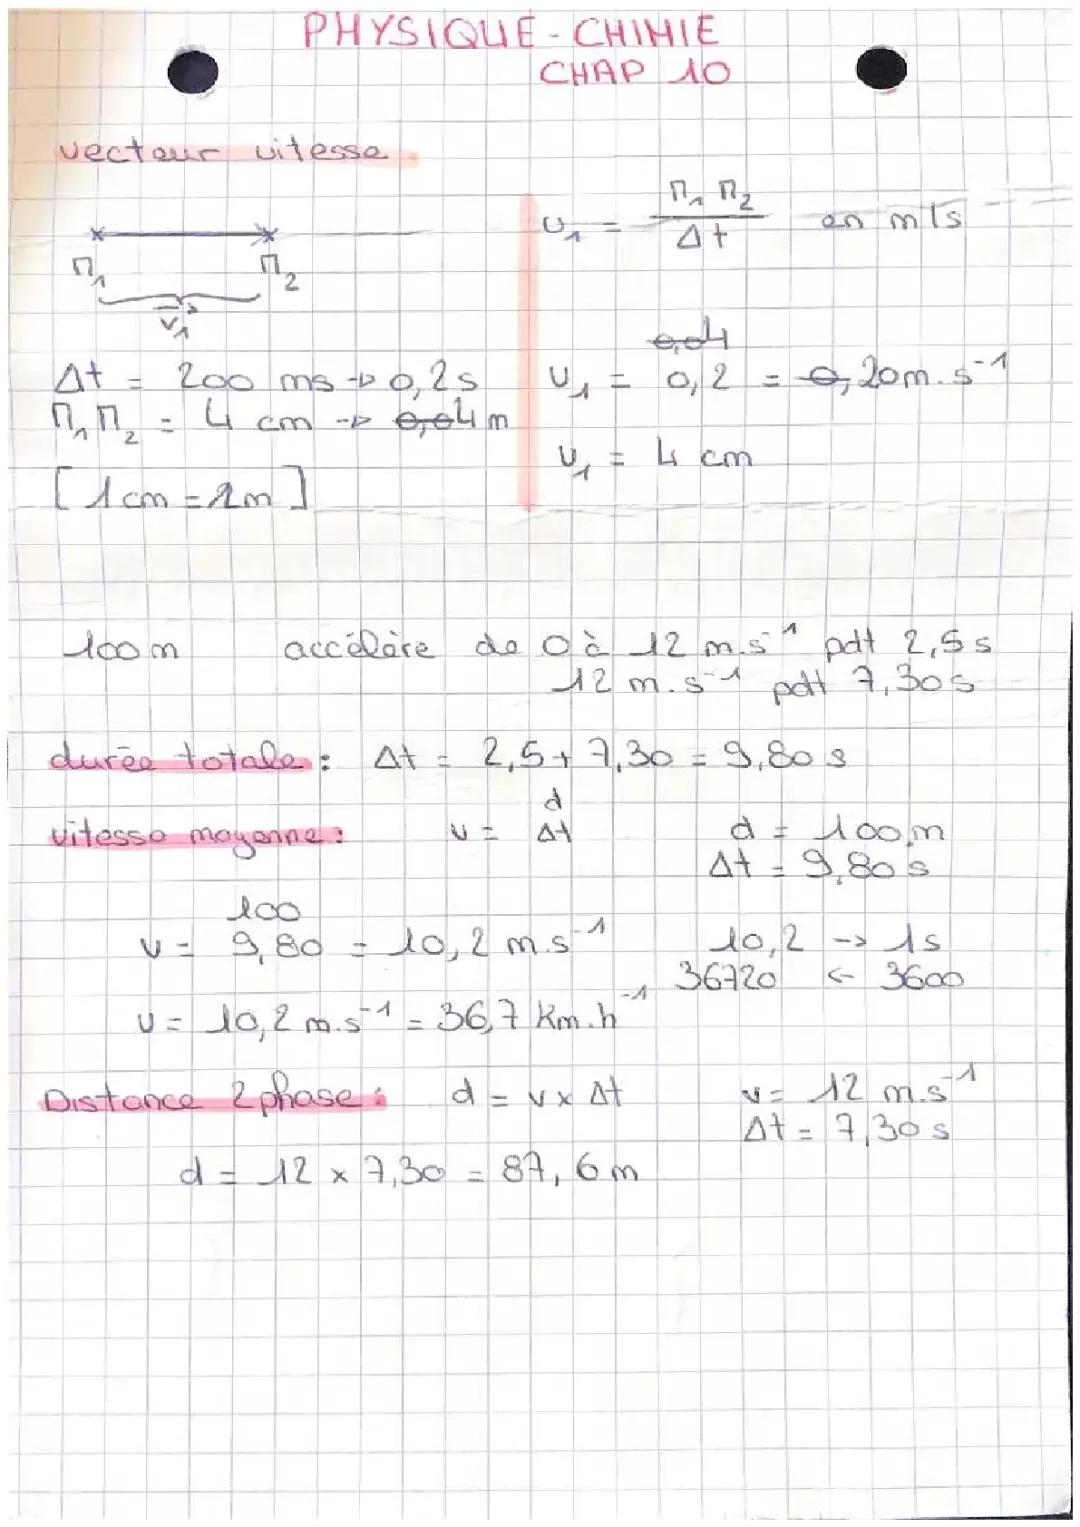 PHYSIQUE-CHIMIE
CHAP 10
vecteur vitesse
M₁ M₂
v₁
Δt = 200 ms → 0,2 s
M₁M₂ = 4 cm → 0,04 m
[1 cm = 1 m]
v₁ = M₁M₂ / Δt en m/s
v₁ = 0,04 / 0,2 = 0,20 m.s⁻¹
v₁ = 4 cm
100 m accélère de 0 à 12 m.s⁻¹ pdt 2,5 s
12 m.s⁻¹ pdt 7,30 s
durée totale : Δt = 2,5 + 7,30 = 9,80 s
vitesse moyenne : v = d / Δt d = 100 m
Δt = 9,80 s
v = 100 / 9,80 = 10,2 m.s⁻¹ 10,2 → 1s
36720 ← 3600
v = 10,2 m.s⁻¹ = 36,7 Km.h⁻¹
Distance 2 phase : d = v x Δt v = 12 m.s⁻¹
Δt = 7,30 s
d = 12 x 7,30 = 87,6 m